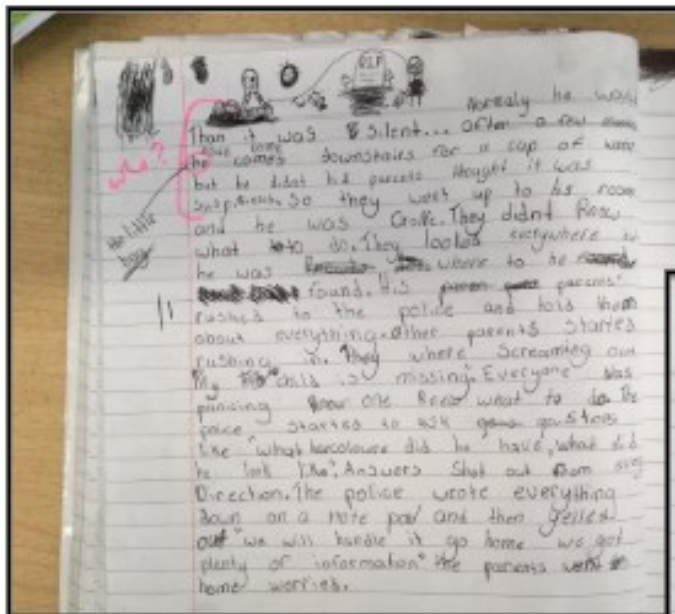 R.I.P
Normaly he would
Than it was silent... after a few
come
he comes downstairs for a cup of
who?
but he didnt his parents thought it was
So they went up to his room
The little
boy
and he was Gone. They didnt know
what to do. They looked everywhere
he was where to be
found. His parents
rushed to the police and told them
about everything. Other parents started
rushing in. They where screaming out
"My child is missing". Everyone was
panicing one knew what to do. The
police started to ask
like "what harcolouer did he have, what did
he look like". Answers shot out from
Direction. The police wrote everything
down on a note pad and then yelled
out "we will handle it go home we got
plenty of information" the parents went
home worried.